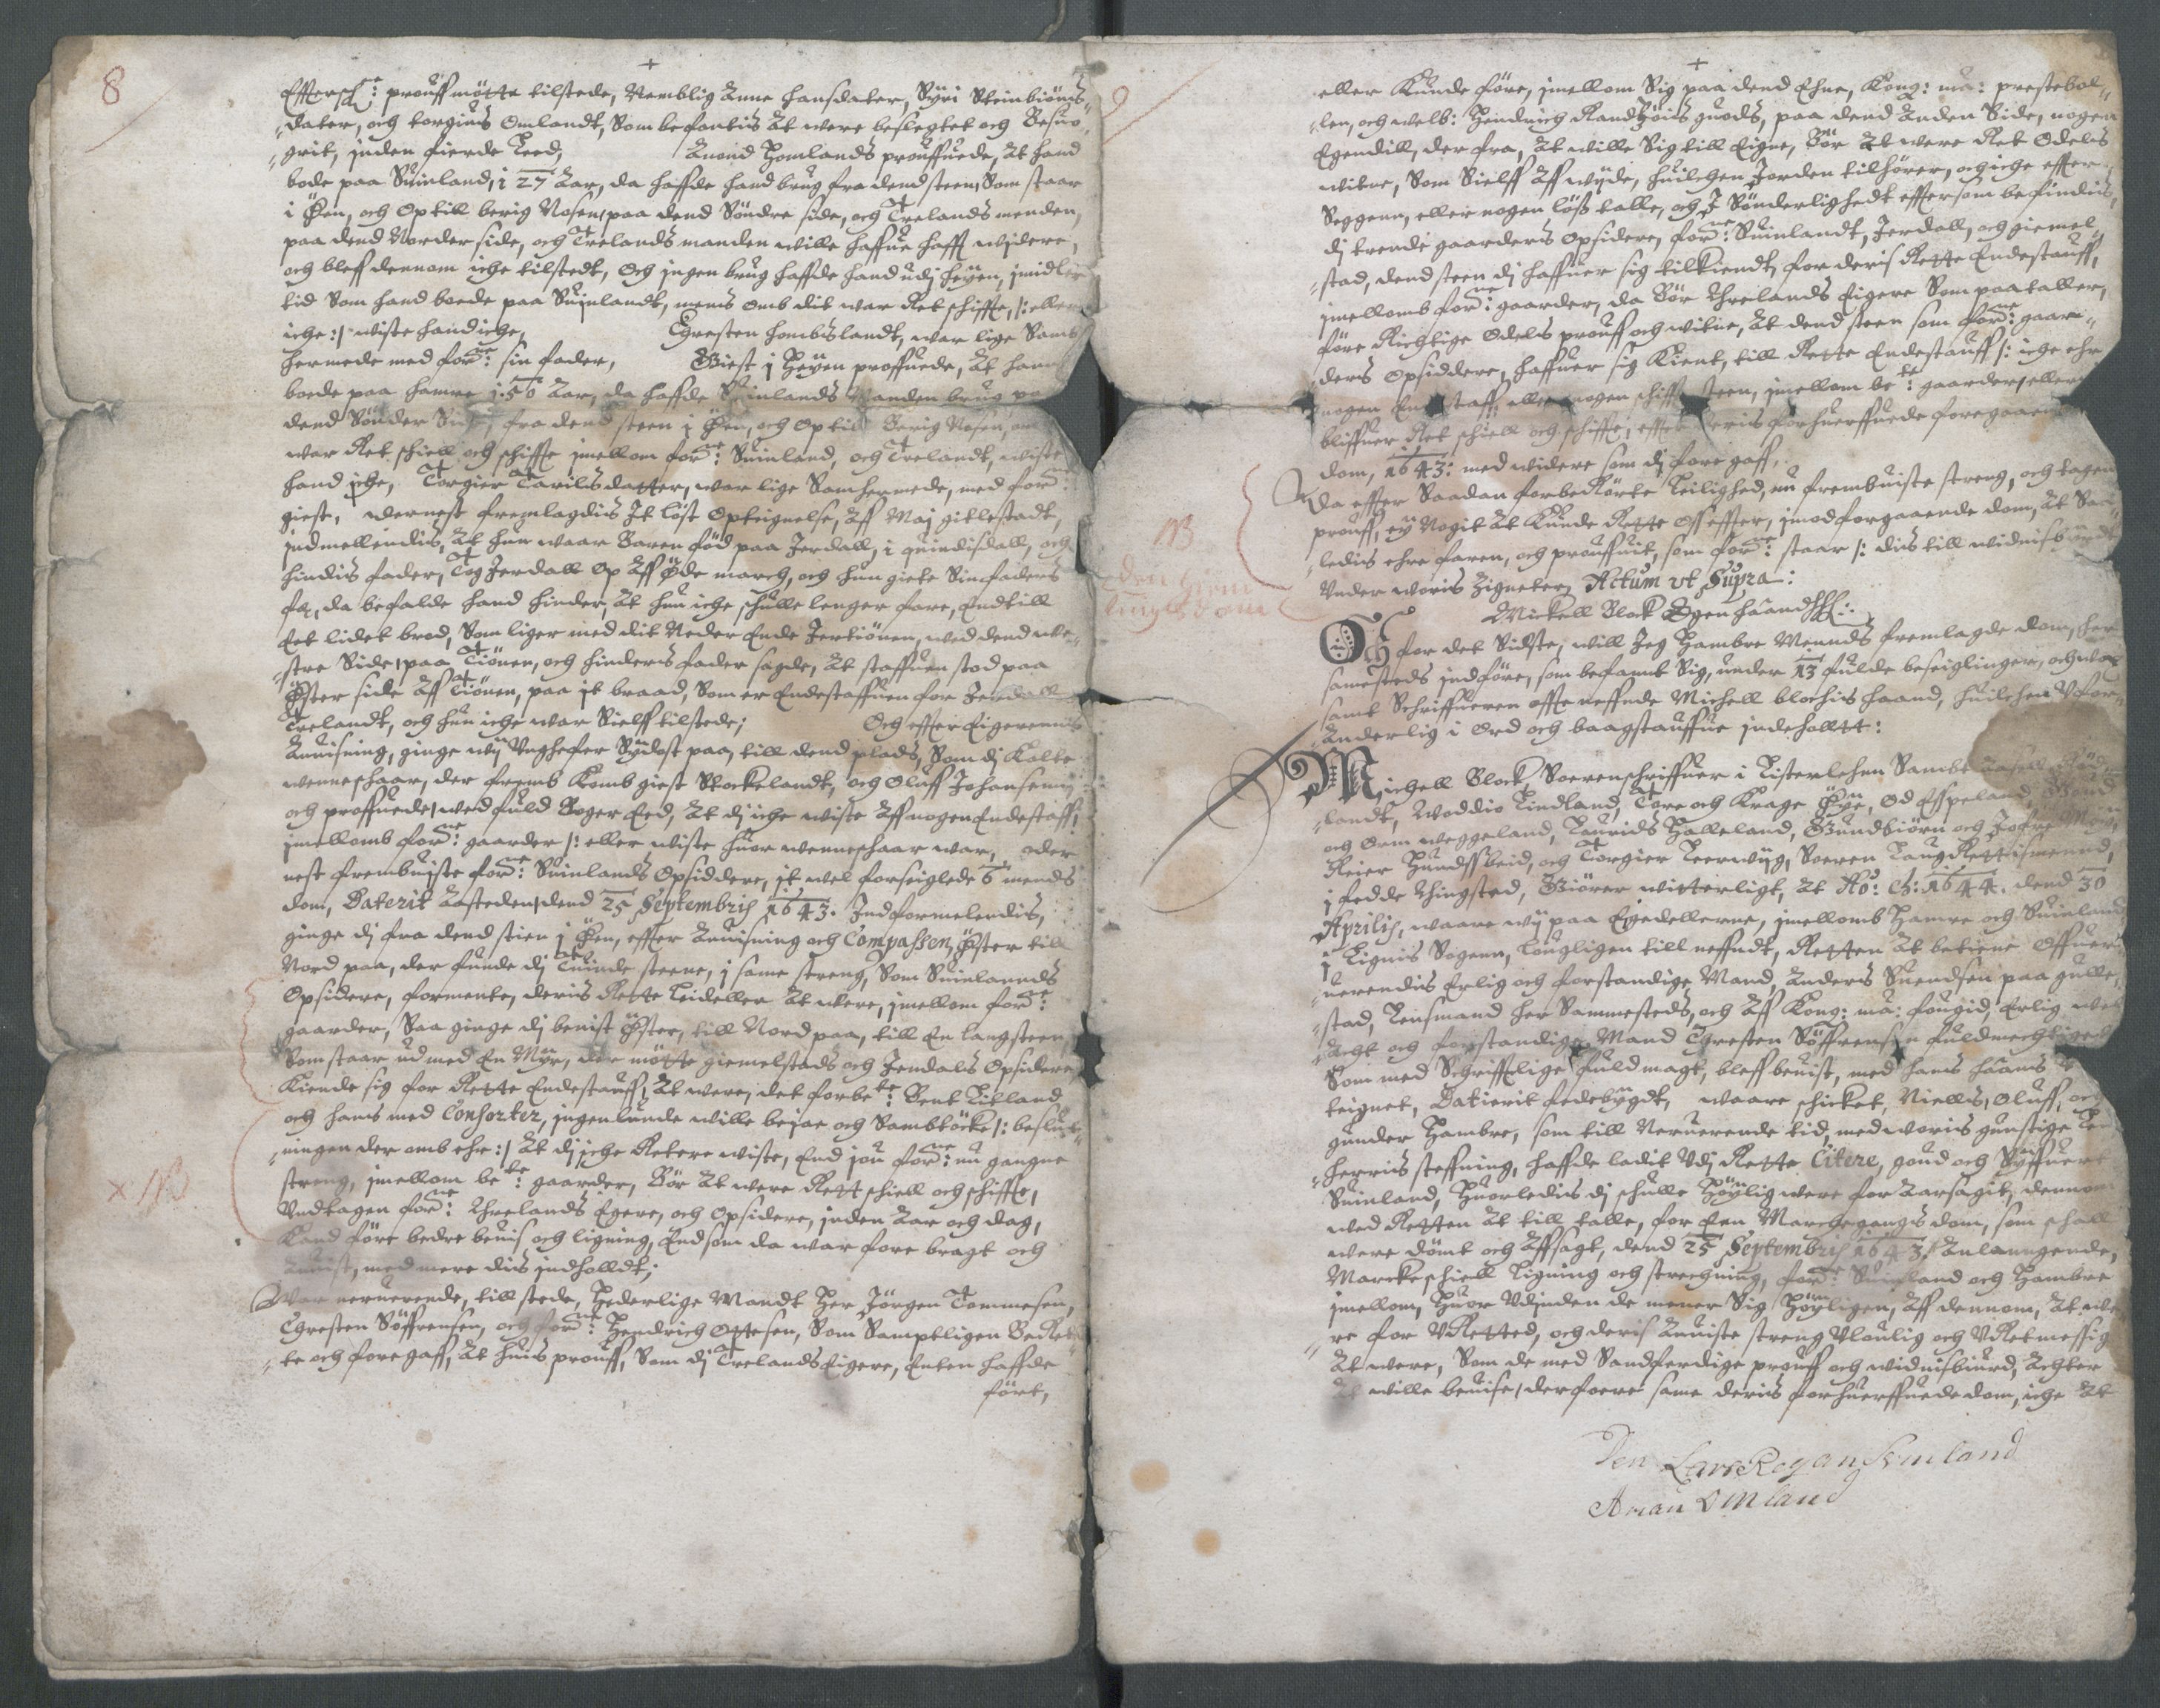 8
Effterschne: prouff møtte tilstede, Nemblig Anne hansdater, Syri Steinbiørns„
„dater, och torgius Omlandt, Som befantis At were beslegtet och Besuo„
„grit, inden fierde Leed, Anond Homlands prouffuede, At hand
bode paa Suinland, i 27 Aar, da haffde hand brug fra dend steen, Som staar
i Øen, och Optill berig Nosen, paa dend Søndre side, och Trelands menden,
paa dend Norder side, och Trelands manden wille haffue hafft wijdere,
och blef dennom iche tilstedt, Och ingen brug haffde hand udj heyen, imidler
tid Som hand boede paa Suinlandt, mens omb dit war Ret schiffte, /: eller
iche :/ wiste hand iche, Chresten hombislandt, war lige Sams
hermede med forne: sin fader, Giest j Heyen proffuede, At hand
boede paa hamre i 50 Aar, da haffde Suinlands Manden brug paa
dend Sønder Side, fra dend steen i Øen, och Op till Berig Nosen, om
war Ret schiell och schiffte imellom forne: Suinland, och Trelandt, wiste
hand iche, Torgier Tarilsdatter, war lige Sam hermede, med forne:
giest, dernest fremlagdis It løst Opteignelse, Aff Maj gitlestadt,
indmellendis, At hun waar Baren fød paa Jerdall, i quindisdall, och
hindis fader, Tog Jerdall Op Aff Øde march, och hun giete Sin faders
fæ, da befalde hand hinder, At hun iche schulle lenger fare, Endtill
Eet lidet brod, Som liger med dit Neder Ende Jertiønen, wed dend we„
„stre Side, paa Tiønen, och hinderis fader sagde, At staffuen stod paa
Øster side Aff Tiønen, paa it braad, Som er Endestaffuen for Jerdall
Trelandt, och hun iche war Sielff tilstede; Och effter Eigerenis
Anuisning, ginge wij Unghefer Sydost paa, till dend plads, Som dj Kalte
wenneschaar, der fremb Komb giest Stockelandt, och Oluff Johansenn
och proffuede, wed fuld Boger Eed, At dj iche wiste Aff nogen Endestaff,
imellomb forne: gaarder /: eller wiste huor wenneschaar war, der
nest frembuiste forne: Suinlands Opsiddere, it vel forseiglede 6 mends
dom, Daterit Aasteden, dend 25 Septembris 1643. Indformelendis,
ginge dj fra dend stien j Øen, effter Anuisning och Compassen, Øster till
Nord paa, der funde dj Tuinde steene, j same streng, Som Suinlannds
Opsidere, formente, deris Rette Leideller At were, imellom forne:
gaarder, Saa ginge dj benist Øster, till Nord paa, till En langsteen
Som staar ud med En Myr, der møtte giemelstads och Jerdals Opsidere
Kiende sig for Rette Endestauff, At were, det forbete: Bent Litland
och hans med Consorter, ingenlunde wille bejae och Sambtøcke /: beslut„
„ningen der omb ehr :/ At dj iche Retere wiste, End jou forne: nu gangne
streng, imellom bete: gaarder, Bør At were Rett schiell och schiffte,
Undtagen forne: Threlands Egere, och Opsidere, inden Aar och dag,
Kand føre bedre beuis och ligning, End som da war fore bragt och
Anuist, med mere dis indholldt;
War neruerende, till stede, Hederlige Mandt Her Jørgen Tommesen,
Chresten Søffrensen, och forne: Hendrich Ottesen, Som Samptligen BeRet
„te och foregaff, At huis prouff, Som dj Trelands Eigere, Enten haffde
ført,
x NB
9
eller Kunde føre, imellom Sig paa dend Ehne, Kong: ma: prestebol„
„len, och welb: Hendrich Randzøus guods, paa dend Anden Side, nogen
Egendill, der fra, At wille Sig till Eigne, Bør At were Ret Odels
witne, Som Sielff Aff wijde, huilchen Jorden tilhører, och iche effter
Seggenn, eller nogen løss talle, och J Sønderlighedt effter som befindis,
dj trende gaarders Opsidere, forne: Suinlandt, Jerdall, och giemel„
„stad, dend steen dj haffuer sig tilkiendt, for deris Rette Endestauff,
imellomb forne: gaarder, da Bør Threlands Eigere Som paataller,
føre Richtige Odels prouff och witne, At dend steen som forne: gaar„
„ders Opsiddere, haffuer sig Kient, till Rette Endestauff /: iche ehr
nogen Endestaff, eller nogen schiffte steen, imellom bete: gaarder, eller
bliffuer Ret schiell och schiffte, effter deris forhuerffuede foregaaende
dom, 1643: med widere som dj foregaff.
Da effter Saadan forberørte Leilighed, nu frembuiste streng, och tagen
prouff, eij Nogit At Kunde Rette Oss effter, imod forgaaende dom, At Saa
„ledis ehre faren, och prouffuit, som forne: staar /: dis till widnisbyrdt
Under woris Zigneter, Actum vt Supra:
Mickell Block Egen haand
NB
Och for det Sidste, will Jeg Hambre Mennds fremlagde dom, her
samesteds indføre, som befannt Sig, under 13 fulde beseiglinger, och war
samt Schriffueren offte neffnde Michell blochis haand, huilchen Vfor„
„Anderlig i Ord och baagstauffue indeholltt:
Michell Block Sorenschriffuer i Listerlehn Sambt
„landt, Woddio Lindland, Tore och Krage Øye, Od Espeland,
och Orm weggeland, Laurids Halleland, Gundbiørn och
Reier Hundssbeid, och Torgier Leerwijg, Soeren Laugrettismennd,
i fedde thingsted, Giører witterligt, At Ao: Ch: 1644. dend 30
Aprilis, waare wij paa Egedellerne, imellomb Hamre och Suinland
j Lignis Sogenn, Lougligen till neffndt, Retten At betiene Offuer„
„uerendis Erlig och forstandige Mand, Anders Suendsen paa gulle„
„stad, Lensmand her Sammesteds, och Aff Kong: ma: fougid, Erlig wel
„Acht och forstandige Mand Chresten Søffrensen fuldmechtiget
Som med Schrifftlige fuldmagt, bleff beuist, med hans haands
teignet, Datierit fedebygdt, waare schicket, Niellis, Oluff, och
gunder Hambre, som till Neruerende tid, med woris gunstige Lens
herris steffning, haffde ladit Vdj Rette Citere, goud och Syffuert
Suinland, Huorledis dj schulle Høylig were for Aarsagit, dennom
wed Retten At till talle, for Een Marchegangs dom, som schall
were dømt och Affsagt, dend 25 Septembris 1643. Anlanngende,
Marckeschiell Ligning och strechning, forne: Suinland och Hambre
imellom, Huor Vdinden de mener Sig Høyligen, Aff dennom, At we„
„re for VRetted, och deris Anuiste streng Vloulig och VRetmessig
At were, Som de med Sandferdige prouff och widnisbiurd, Achter
At wille beuise, der foere same deris forhuerffuede dom, iche At